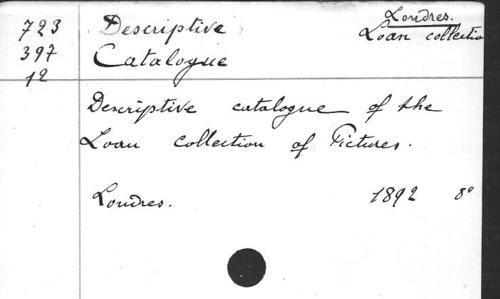 723 Descriptive Londres.
397 Catalogue Loan collectio
12
Descriptive catalogue of the
Loan collection of Pictures.
Londres. 1892 8°